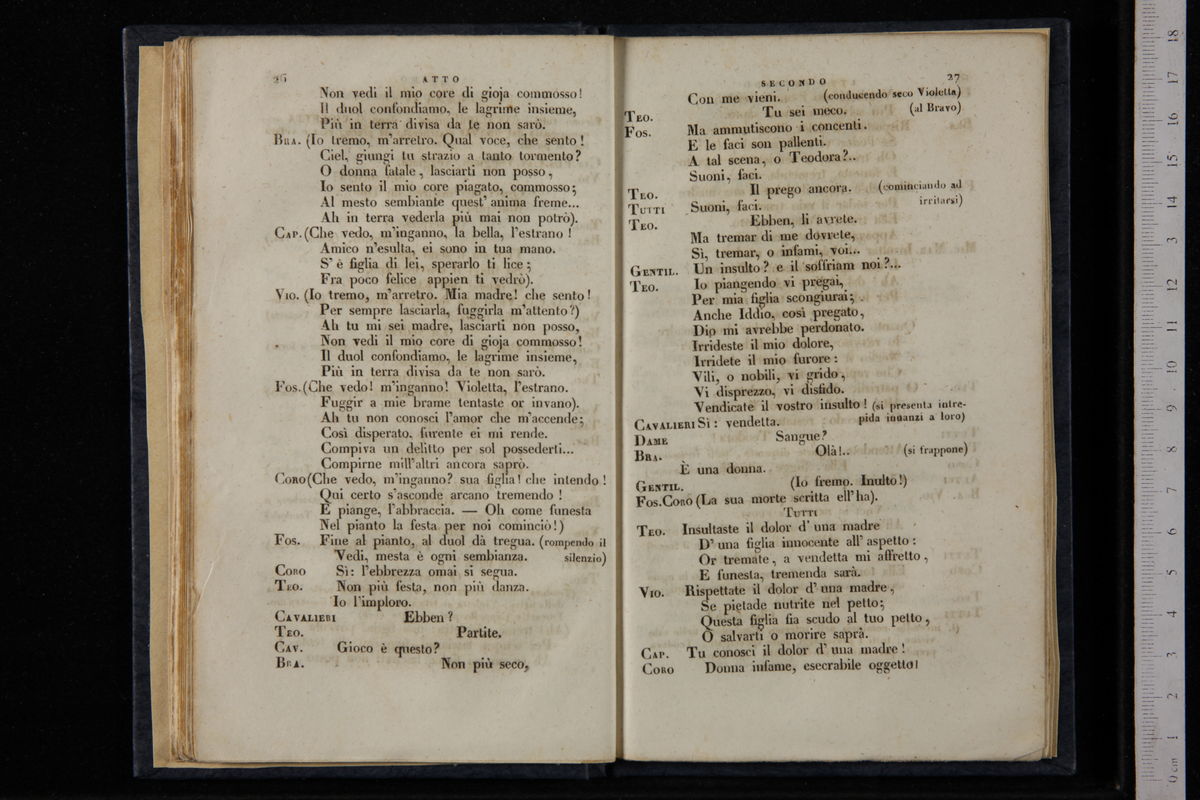 26 ATTO
Non vedi il mio core di gioja commosso!
Il duol confondiamo, le lagrime insieme,
Più in terra divisa da te non sarò.
BRA. (Io tremo, m'arretro. Qual voce, che sento!
Ciel, giungi tu strazio a tanto tormento?
O donna fatale, lasciarti non posso,
Io sento il mio core piagato, commosso;
Al mesto sembiante quest' anima freme...
Ah in terra vederla più mai non potrò).
CAP. (Che vedo, m'inganno, la bella, l'estrano!
Amico n'esulta, ei sono in tua mano.
S' è figlia di lei, sperarlo ti lice;
Fra poco felice appien ti vedrò).
VIO. (Io tremo, m'arretro. Mia madre! che sento!
Per sempre lasciarla, fuggirla m'attento?)
Ah tu mi sei madre, lasciarti non posso,
Non vedi il mio core di gioja commosso!
Il duol confondiamo, le lagrime insieme,
Più in terra divisa da te non sarò.
FOS. (Che vedo! m'inganno! Violetta, l'estrano.
Fuggir a mie brame tentaste or invano).
Ah tu non conosci l'amor che m'accende;
Così disperato, furente ei mi rende.
Compiva un delitto per sol possederti...
Compirne mill'altri ancora saprò.
CORO (Che vedo, m'inganno? sua figlia! che intendo!
Qui certo s'asconde arcano tremendo!
E piange, l'abbraccia. — Oh come funesta
Nel pianto la festa per noi cominciò!)
FOS. Fine al pianto, al duol dà tregua. (rompendo il
Vedi, mesta è ogni sembianza. silenzio)
CORO Sì: l'ebbrezza omai si segua.
TEO. Non più festa, non più danza.
Io l'imploro.
CAVALIERI Ebben?
TEO. Partite.
CAV. Gioco è questo?
BRA. Non più seco,
SECONDO 27
Con me vieni. (conducendo seco Violetta)
TEO. Tu sei meco. (al Bravo)
FOS. Ma ammutiscono i concenti.
E le faci son pallenti.
A tal scena, o Teodora?..
Suoni, faci.
TEO. Il prego ancora. (cominciando ad
TUTTI Suoni, faci. irritarsi)
TEO. Ebben, li avrete.
Ma tremar di me dovrete,
Sì, tremar, o infami, voi...
GENTIL. Un insulto? e il soffriam noi?...
TEO. Io piangendo vi pregai,
Per mia figlia scongiurai;
Anche Iddio, così pregato,
Dio mi avrebbe perdonato.
Irrideste il mio dolore,
Irridete il mio furore:
Vili, o nobili, vi grido,
Vi disprezzo, vi disfido.
Vendicate il vostro insulto! (si presenta intre-
CAVALIERI Sì: vendetta. pida innanzi a loro)
DAME Sangue?
BRA. Olà!.. (si frappone)
È una donna.
GENTIL. (Io fremo. Inulto!)
FOS. CORO (La sua morte scritta ell'ha).
TUTTI
TEO. Insultaste il dolor d' una madre
D' una figlia innocente all' aspetto:
Or tremate, a vendetta mi affretto,
E funesta, tremenda sarà.
VIO. Rispettate il dolor d' una madre,
Se pietade nutrite nel petto;
Questa figlia fia scudo al tuo petto,
O salvarti o morire saprà.
CAP. Tu conosci il dolor d' una madre!
CORO Donna infame, esecrabile oggetto!
0 cm 1 2 3 4 5 6 7 8 9 10 11 12 13 14 15 16 17 18